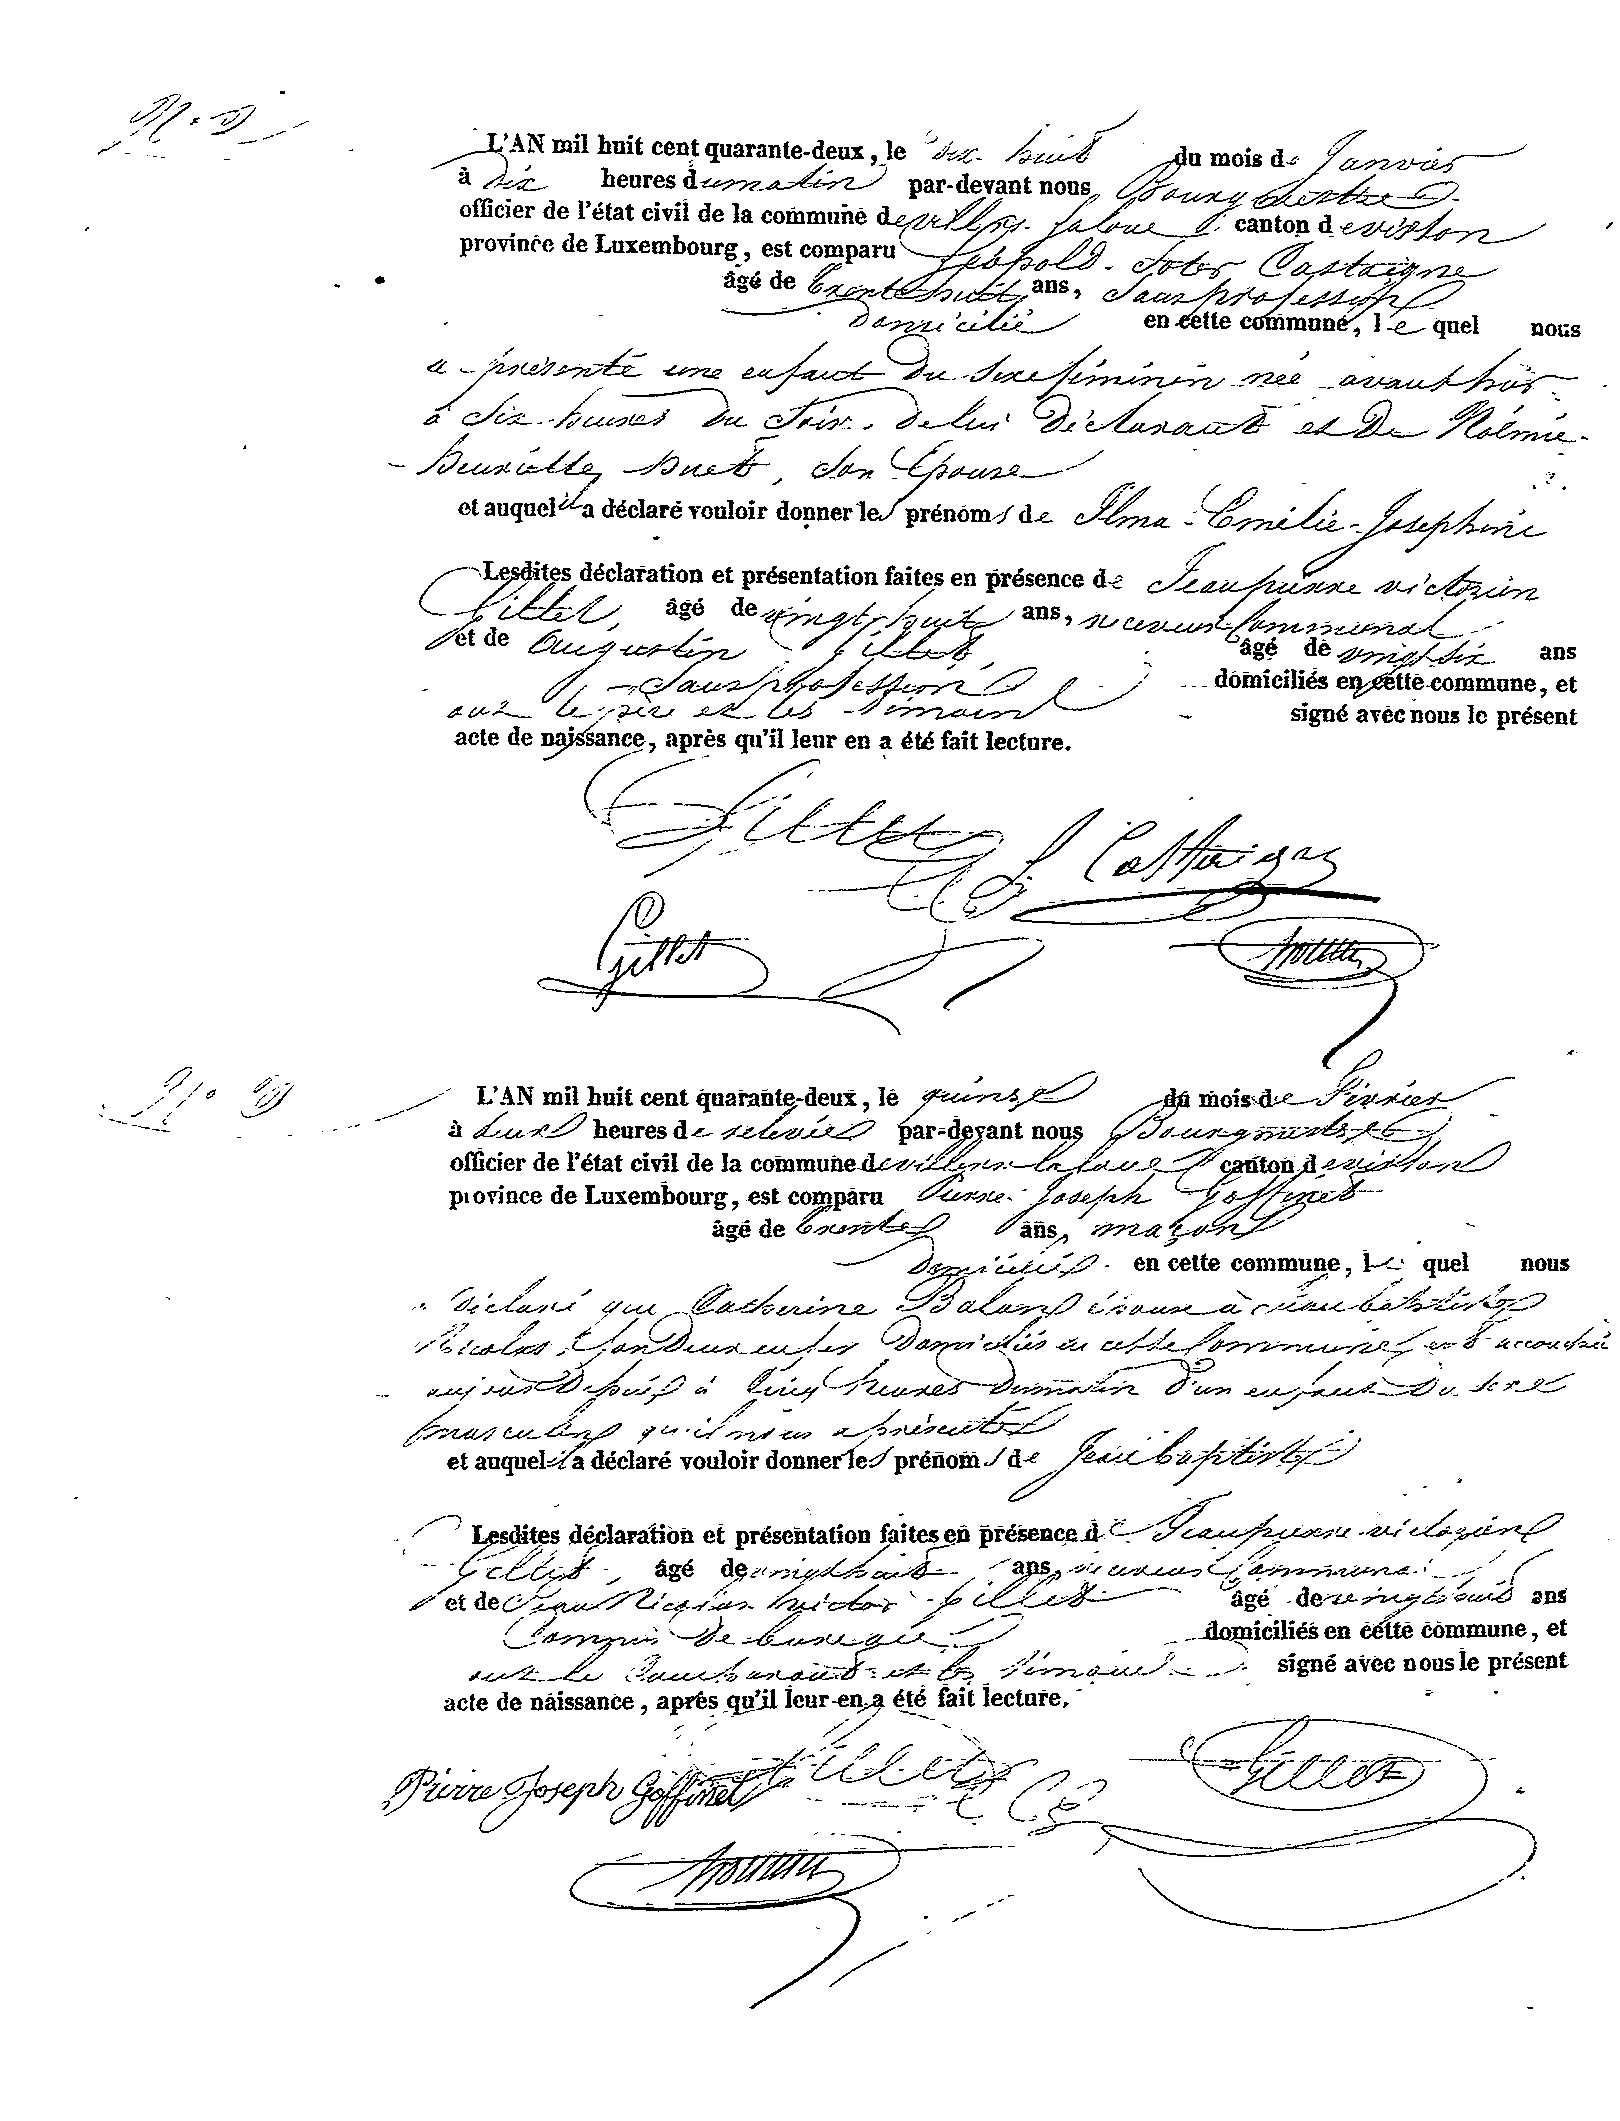 L'AN mil huit cent quarante-deux, le dix huit du mois de Janvier
à dix heures du matin par-devant nous Bourgmestre
officier de l'état civil de la commune de villers la loue canton de virton
province de Luxembourg, est comparu Léopold Castaigne
âgé de trente huit ans, Sans profession
domicilié en cette commune, le quel nous
a présenté une enfant du Sexe féminin née avant hier
à six heures du Soir, de lui déclarant et de Noémie
henriette huet, son Epouse
et auquel il a déclaré vouloir donner les prénoms de Ilma Emélie Joséphine
Lesdites déclaration et présentation faites en présence de Jean pierre victorien
Gillet, âgé de vingt huit ans, receveur Communal
et de augustin Gillet, âgé de vingt six ans
Sans profession domiciliés en cette commune, et
ont le père et les témoins signé avec nous le présent
acte de naissance, après qu'il leur en a été fait lecture.
Gillet
L Castaigne
Gillet
L'AN mil huit cent quarante-deux, le quinze du mois de Février
à deux heures de relevée par-devant nous Bourgmestre
officier de l'état civil de la commune de villers la loue canton de virton
province de Luxembourg, est comparu Pierre Joseph Goffinet
âgé de trente ans, maçon
domicilié en cette commune, le quel nous
a déclaré que Catherine Balon épouse à jean baptiste
Nicolas, tous deux domiciliés en cette Commune, est accouchée
aujourd'hui à Cinq heures du matin d'un enfant du sexe
masculin qu'il nous a présenté
et auquel il a déclaré vouloir donner les prénoms de Jean baptiste
Lesdites déclaration et présentation faites en présence de Jean pierre victorien
Gillet, âgé de vingt huit ans, receveur Communal
et de Jean Nicolas victor Gillet âgé de vingt huit ans
Commis de bureau domiciliés en cette commune, et
ont le Comparant et les témoins signé avec nous le présent
acte de naissance, après qu'il leur en a été fait lecture.
Pierre Joseph Goffinet Gillet Gillet